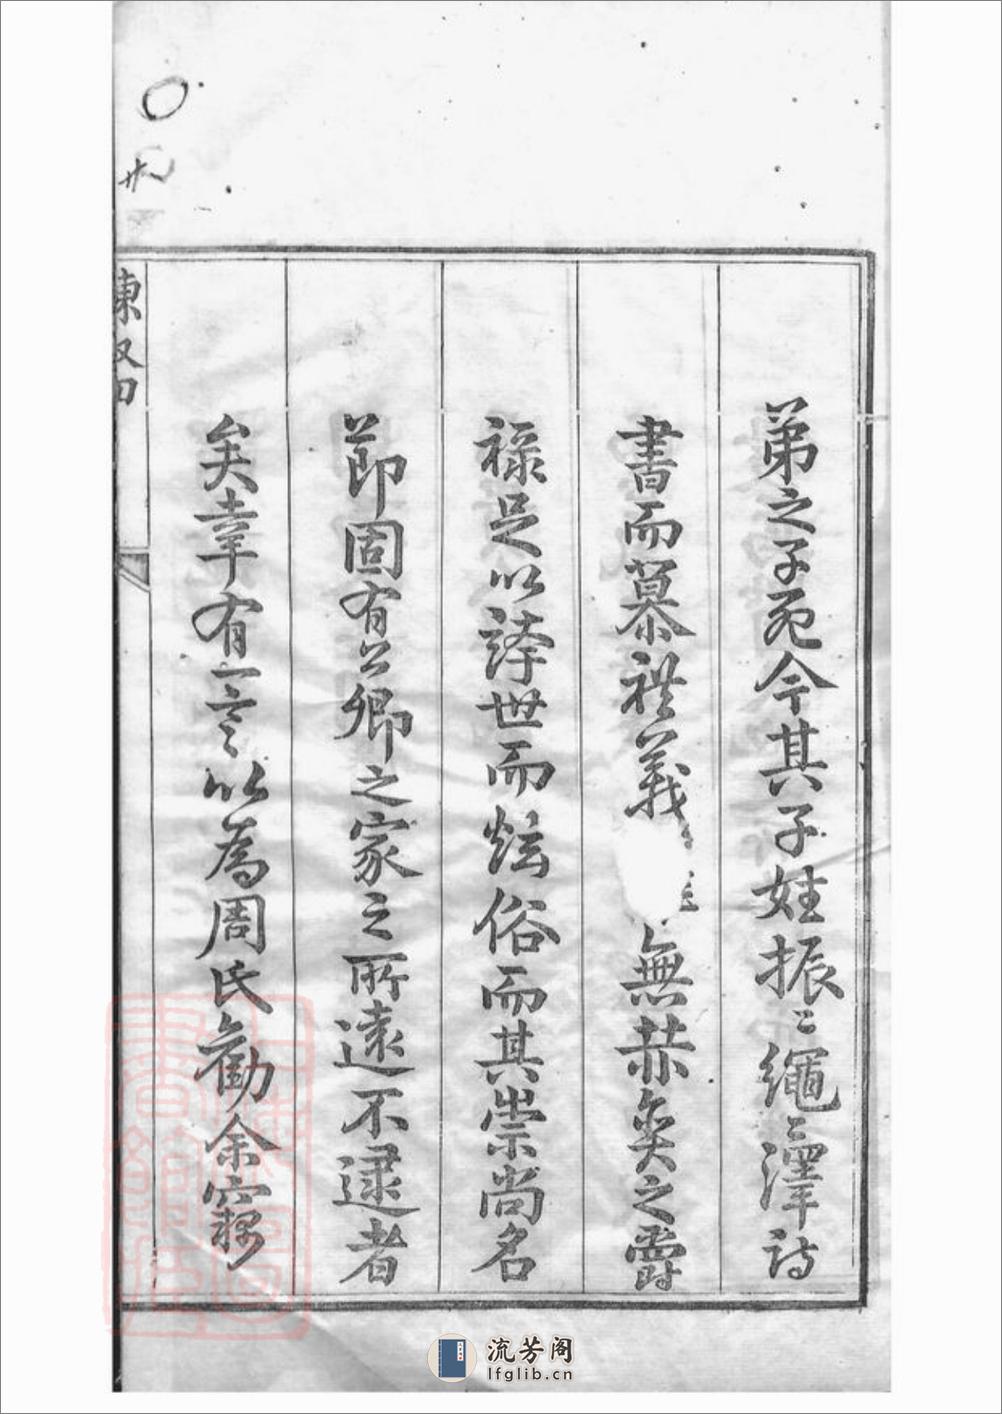 弟之子克今其子姓振〻繩〻澤詩
書而慕禮義無恭矣之爵
祿足以誇世而炫俗而其崇尚名
節固有公卿之家之所遠不逮者
矣幸有一言以為周氏勸余竊
陳叙
流芳阁
lfglib.cn